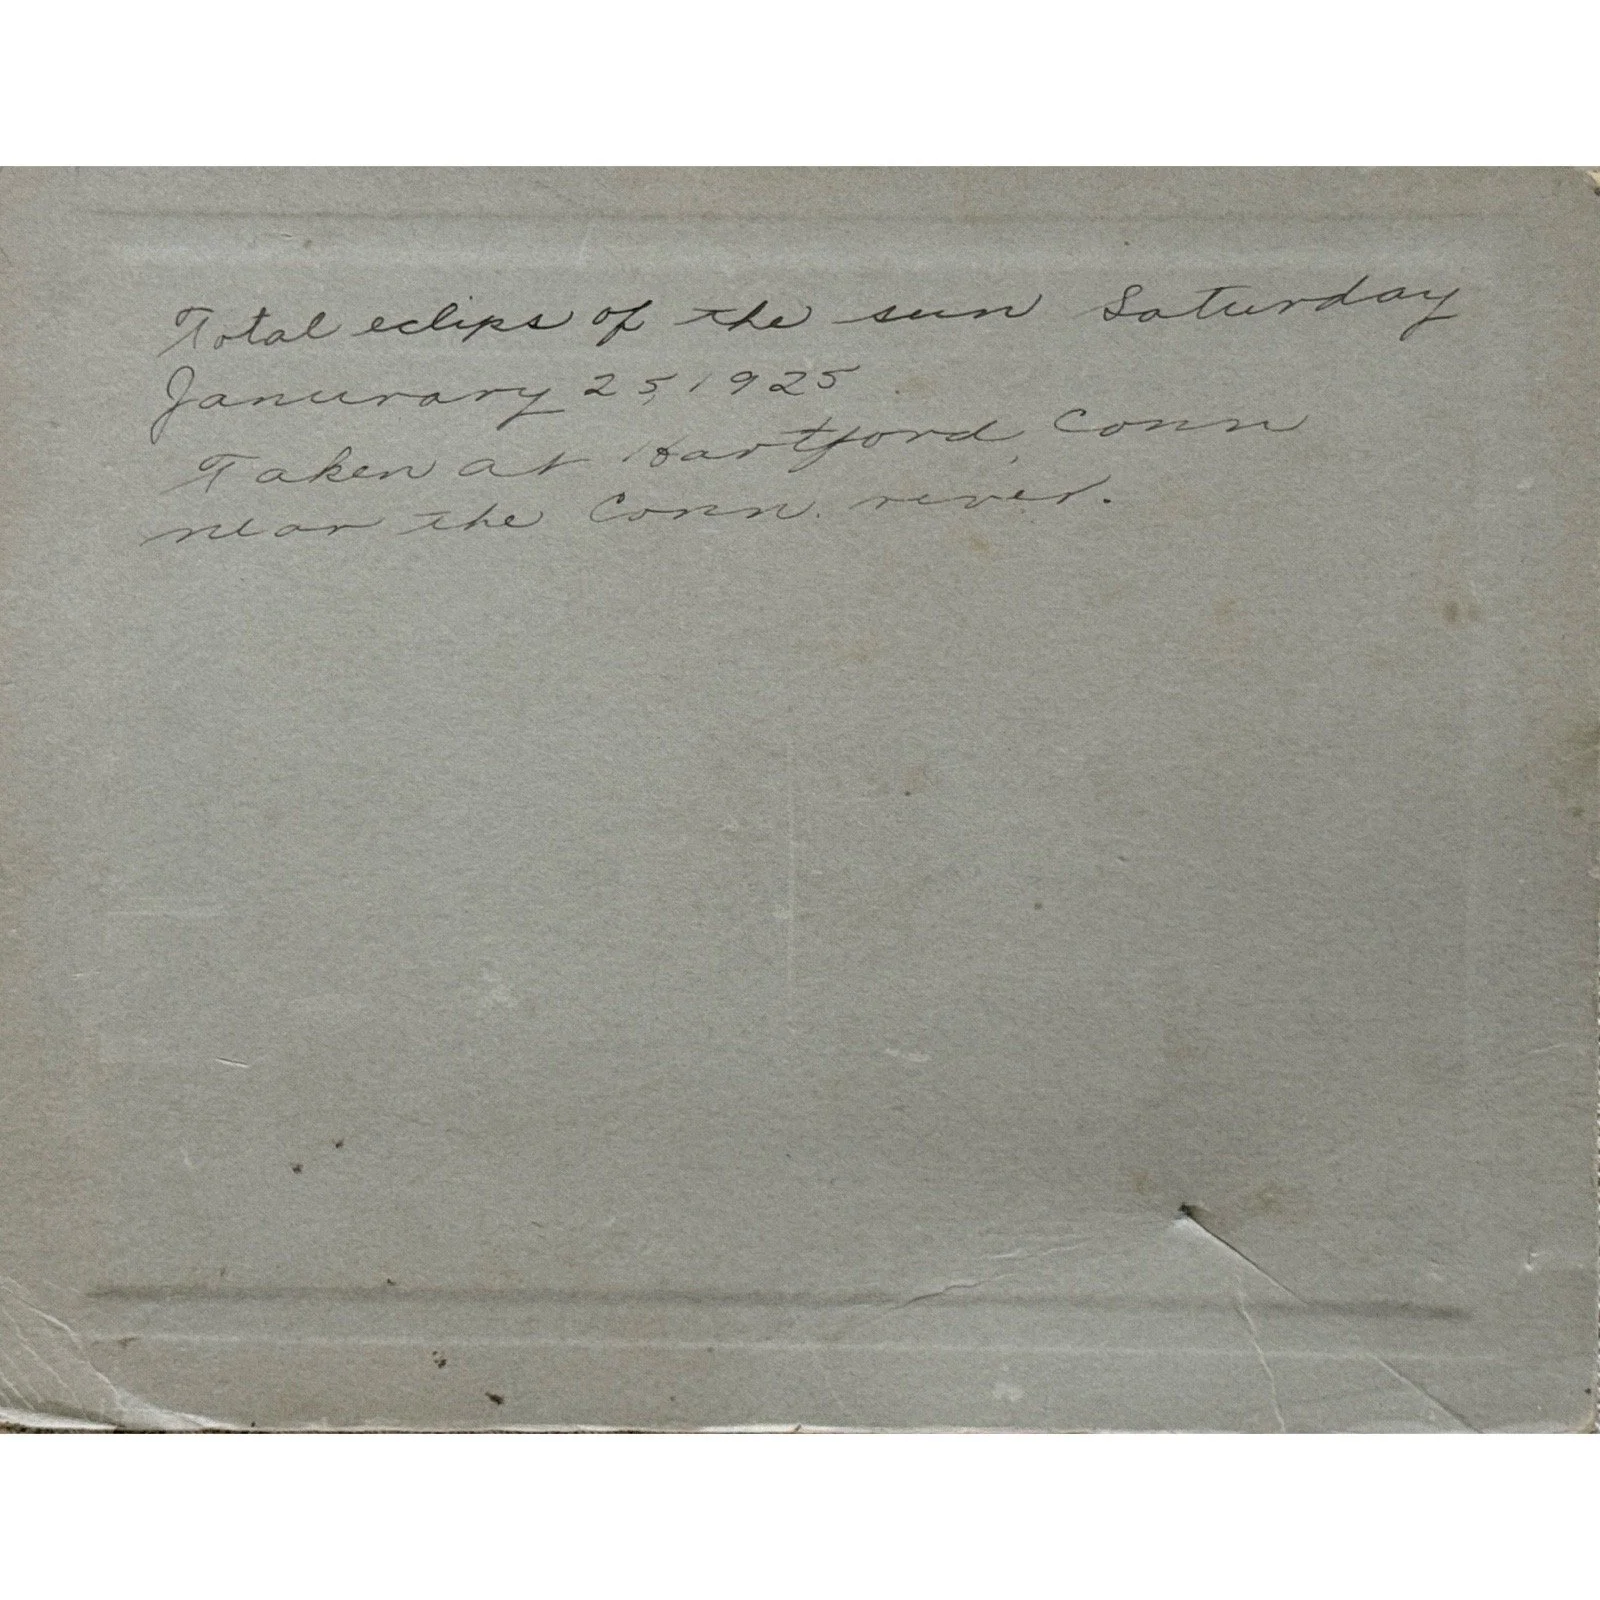 Total eclips of the sun Saturday
Janurary 25, 1925
Taken at Hartford, Conn
near the Conn. river.